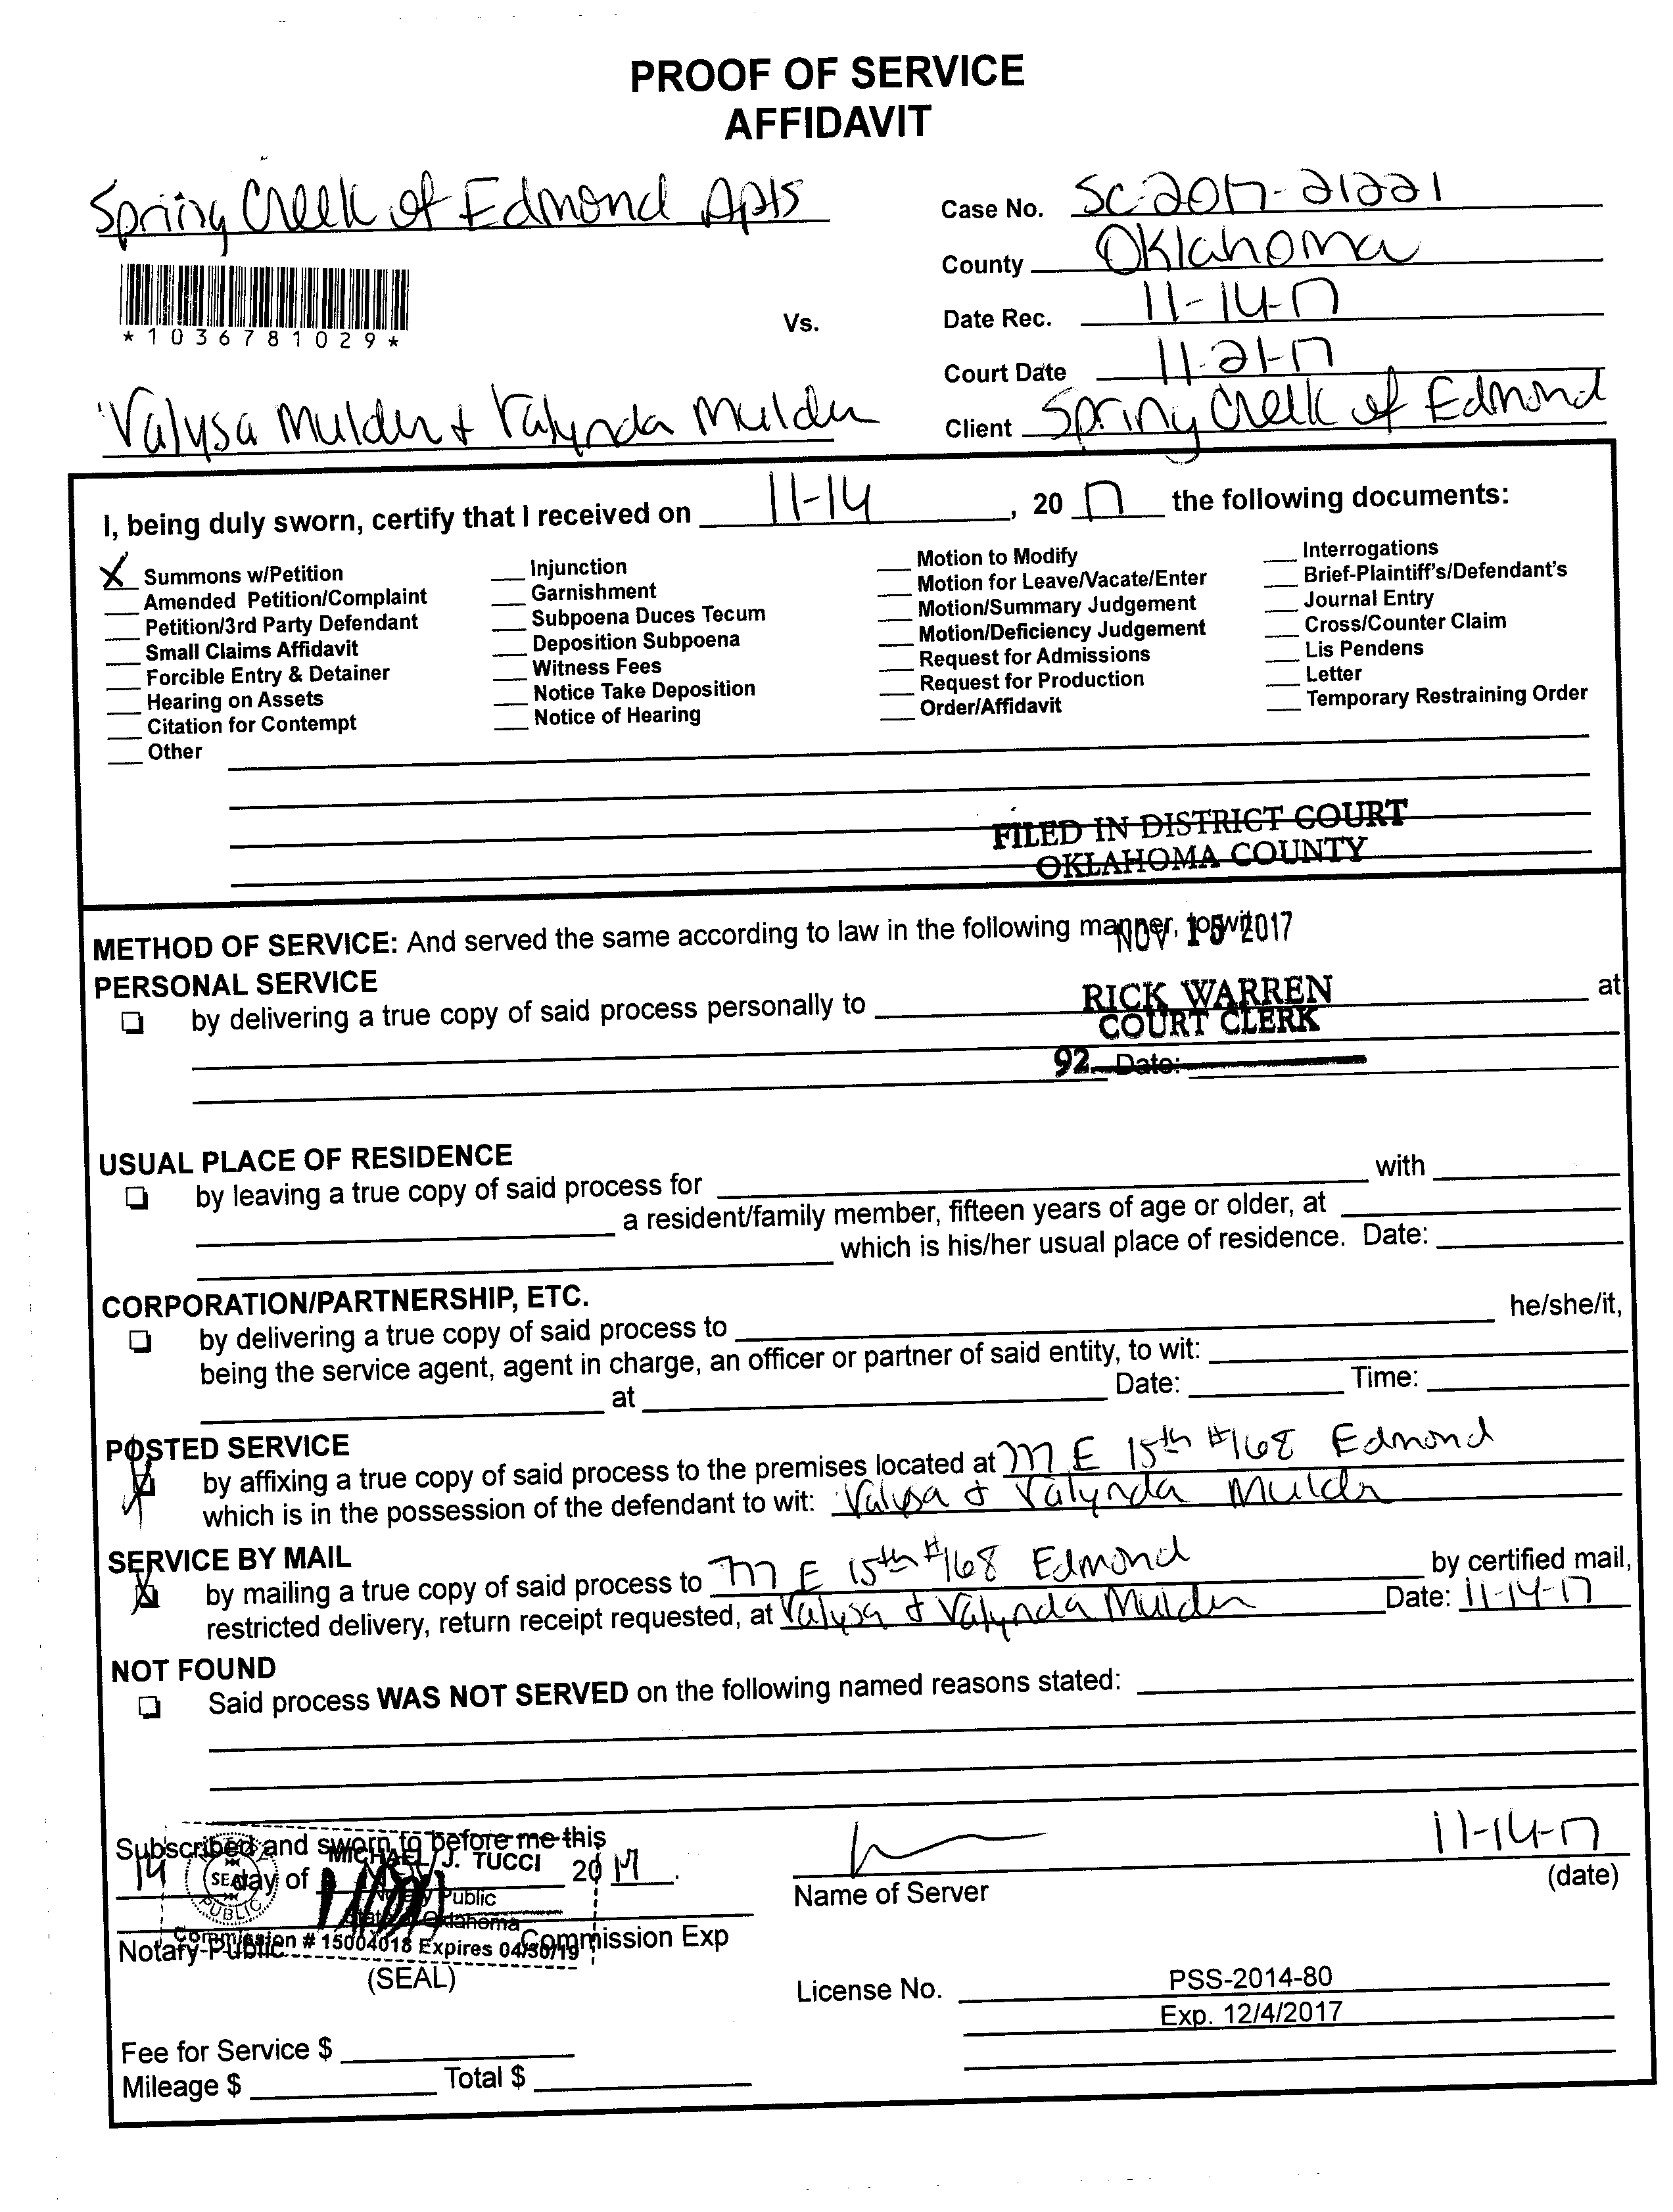 PROOF OF SERVICE
AFFIDAVIT
Spring Creek of Edmond Apts
Case No. SC-2017-21221
County Oklahoma
*1036781029*
Vs.
Date Rec. 11-14-17
Court Date 11-21-17
Valysa Mulder & Valynda Mulder
Client Spring Creek of Edmond
I, being duly sworn, certify that I received on 11-14, 20 17 the following documents:
X Summons w/Petition
Amended Petition/Complaint
Petition/3rd Party Defendant
Small Claims Affidavit
Forcible Entry & Detainer
Hearing on Assets
Citation for Contempt
Other
Injunction
Garnishment
Subpoena Duces Tecum
Deposition Subpoena
Witness Fees
Notice Take Deposition
Notice of Hearing
Motion to Modify
Motion for Leave/Vacate/Enter
Motion/Summary Judgement
Motion/Deficiency Judgement
Request for Admissions
Request for Production
Order/Affidavit
Interrogations
Brief-Plaintiff's/Defendant's
Journal Entry
Cross/Counter Claim
Lis Pendens
Letter
Temporary Restraining Order
FILED IN DISTRICT COURT
OKLAHOMA COUNTY
METHOD OF SERVICE: And served the same according to law in the following manner, to wit:
NOV 15 2017
PERSONAL SERVICE
by delivering a true copy of said process personally to at
RICK WARREN
COURT CLERK
92 Date:
USUAL PLACE OF RESIDENCE
by leaving a true copy of said process for with
a resident/family member, fifteen years of age or older, at
which is his/her usual place of residence. Date:
CORPORATION/PARTNERSHIP, ETC.
by delivering a true copy of said process to he/she/it,
being the service agent, agent in charge, an officer or partner of said entity, to wit:
at Date: Time:
POSTED SERVICE
by affixing a true copy of said process to the premises located at 777 E 15th #168 Edmond
which is in the possession of the defendant to wit: Valysa & Valynda Mulder
SERVICE BY MAIL
by mailing a true copy of said process to 777 E 15th #168 Edmond by certified mail,
restricted delivery, return receipt requested, at Valysa & Valynda Mulder Date: 11-14-17
NOT FOUND
Said process WAS NOT SERVED on the following named reasons stated:
Subscribed and sworn to before me this
14 day of 20 17.
MICHAEL J. TUCCI
Notary Public
State of Oklahoma
Commission # 15004018 Expires 04/30/19
SEAL
PUBLIC
Notary Public Commission Exp
(SEAL)
11-14-17
Name of Server (date)
License No. PSS-2014-80
Exp. 12/4/2017
Fee for Service $
Mileage $ Total $